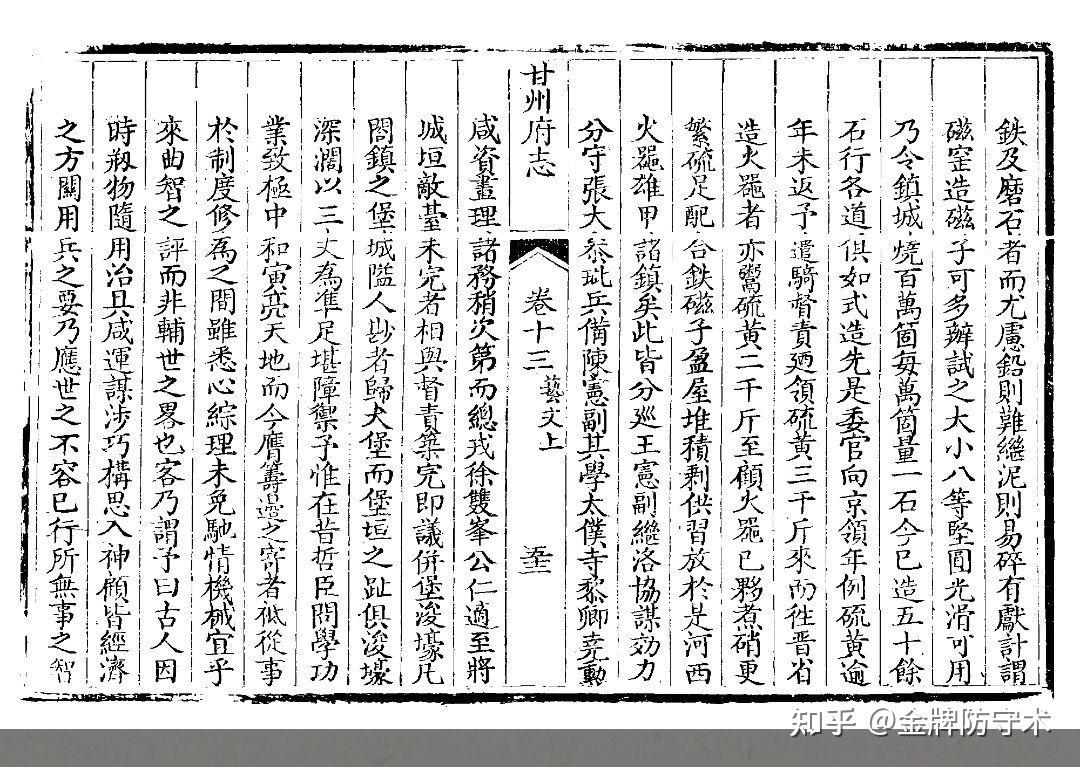 鉄及磨石者而尤慮鉛則難繼泥則易碎有獻計謂
磁窑造磁子可多辦試之大小八等堅圓光滑可用
乃令鎮城燒百萬箇每萬箇量一石今已造五十餘
石行各道俱如式造先是委官向京領年例硫黃逾
年未返予遣騎督責廼領硫黃三千斤來而徃晋省
造火噐者亦鬻硫黃二千斤至顧火噐已夥煮硝更
繁硫足配合鉄磁子盈屋堆積剩供習放於是河西
火噐雄甲諸鎮矣此皆分巡王憲副繼洛協謀効力
分守張大叅玭兵備陳憲副其學太僕寺黎卿堯勳
甘州府志
卷十三
藝文上
咸資畫理諸務稍次第而總戎徐雙峯公仁適至將
城垣敵臺未完者相與督責築完即議併堡浚壕凡
閤鎮之堡城隘人尠者歸大堡而堡垣之趾俱浚壕
深濶以三丈為凖足堪障禦予惟在昔哲臣問學功
業致極中和寅亮天地而今膺籌邊之寄者袛從事
於制度修為之間雖悉心綜理未免馳情機械宜乎
來曲智之評而非輔世之畧也客乃謂予曰古人因
時剏物隨用治具咸運謀涉巧構思入神顧皆經濟
之方闗用兵之要乃應世之不容已行所無事之智
知乎 @金牌防守术